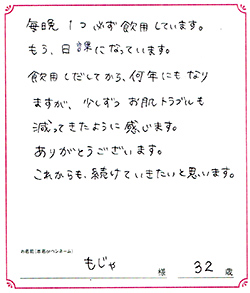 毎晩1つ必ず飲用しています。
もう、日課になっています。
飲用しだしてから、何年にもなり
ますが、少しずつお肌トラブルも
減ってきたように感じます。
ありがとうございます。
これからも、続けていきたいと思います。
お名前(本名かペンネーム)
もじゃ 様 32 歳